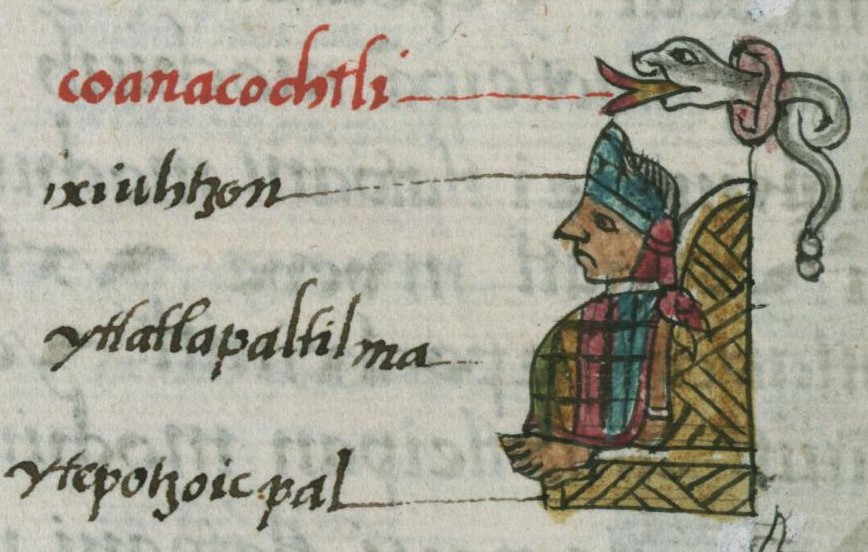 coanacochtli
ixiuhtzon
ytlatlapaltilma
ytepotzoicpal